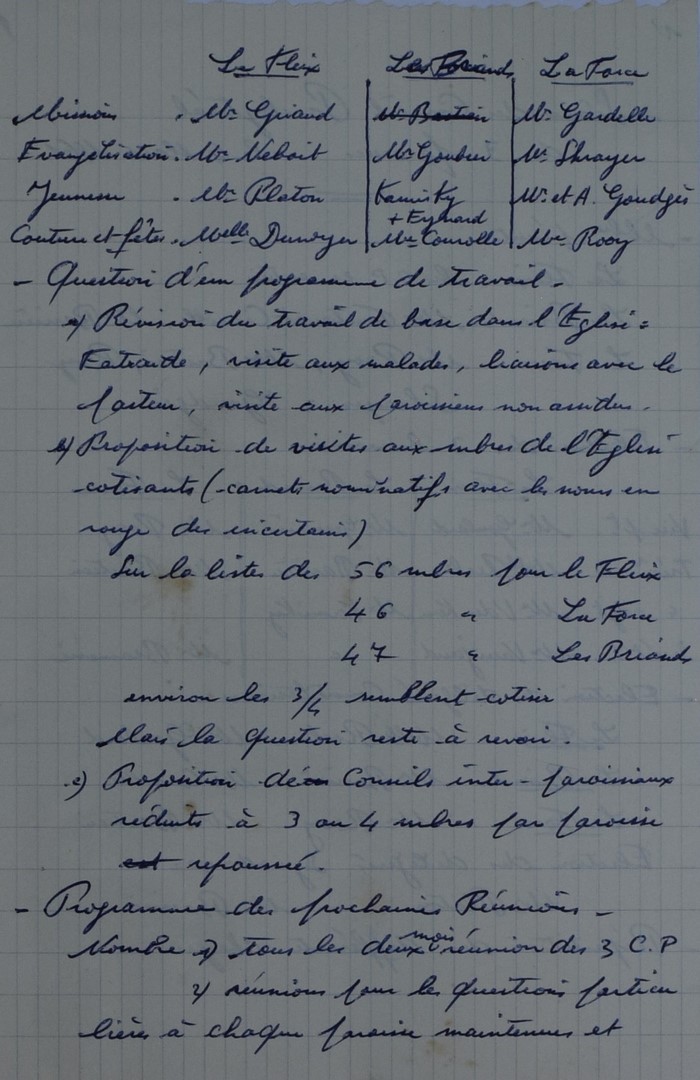 Le Fleix Les Briands La Force
Missions . Mr Giraud Mr Bastien Mr Gardelle
Evangélisation . Mr Nebout Mr Goubier Mr Shrayer
Jeunesse . Mr Platon Kaminsky + Eymard Mr et A. Goudgès
Couture et fêtes . Melle Dunoyer Me Courolle Me Rooy
- Question d'un programme de travail -
a) Révision du travail de base dans l'Eglise :
Entraide, visite aux malades, liaisons avec le
Pasteur, visite aux paroissiens non assidus.
b) Proposition de visites aux mbres de l'Eglise
cotisants (-carnets nominatifs avec les noms en
rouge des incertains)
Sur la listes des 56 mbres pour le Fleix
46 " La Force
47 " Les Briands
environ les 3/4 semblent cotiser
Mais la question reste à revoir.
c) Proposition de Conseils inter-paroissiaux
réduits à 3 ou 4 mbres par paroisse
est repoussé.
- Programme des prochaines Réunions -
Nombre 1) tous les deux mois réunion des 3 C.P
2) réunions pour les questions particu
lières à chaque paroisse maintenues et